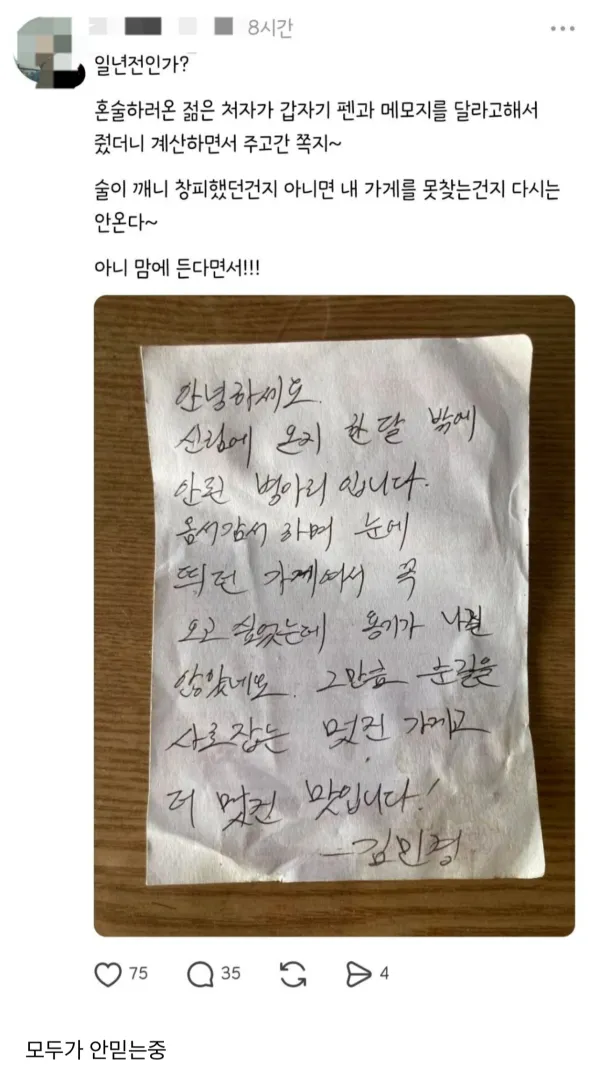 8시간
일년전인가?
혼술하러온 젊은 처자가 갑자기 펜과 메모지를 달라고해서
줬더니 계산하면서 주고간 쪽지~
술이 깨니 창피했던건지 아니면 내 가게를 못찾는건지 다시는
안온다~
아니 맘에 든다면서!!!
안녕하세요.
신림에 온지 한달 밖에
안된 병아리 입니다.
옴서감서 하며 눈에
띄던 가게여서 꼭
오고 싶었는데 용기가 나질
않았네요. 그만큼 눈길을
사로잡는 멋진 가게고
더 멋진 맛입니다!
-김민정
75 35 4
모두가 안믿는중